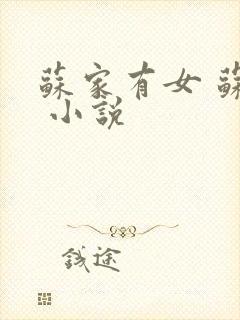 蘇家有女 蘇
小說
錢途